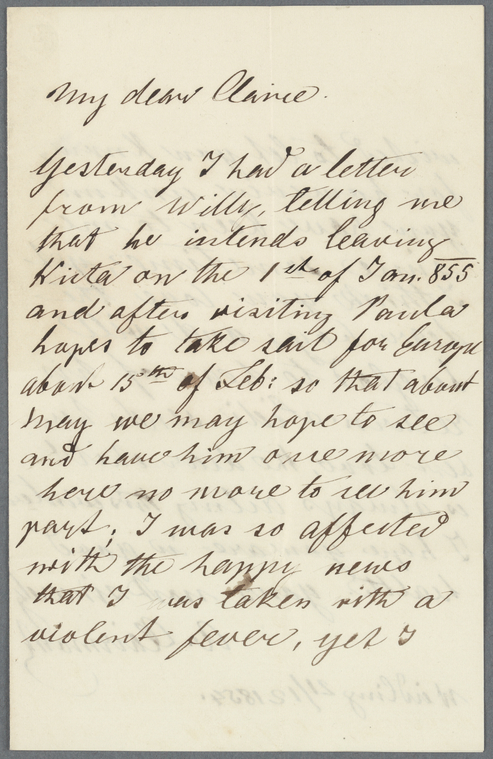 My dear Claire.
Yesterday I had a letter
from Willy, telling me
that he intends leaving
Kirta on the 1st of Jan: 855
and after visiting Paula
hopes to take sail for Europe
about 15th of Feb: so that about
May we may hope to see
and have him once more
here no more to see him
part; I was so affected
with the happy news
that I was taken with a
violent fever, yet I